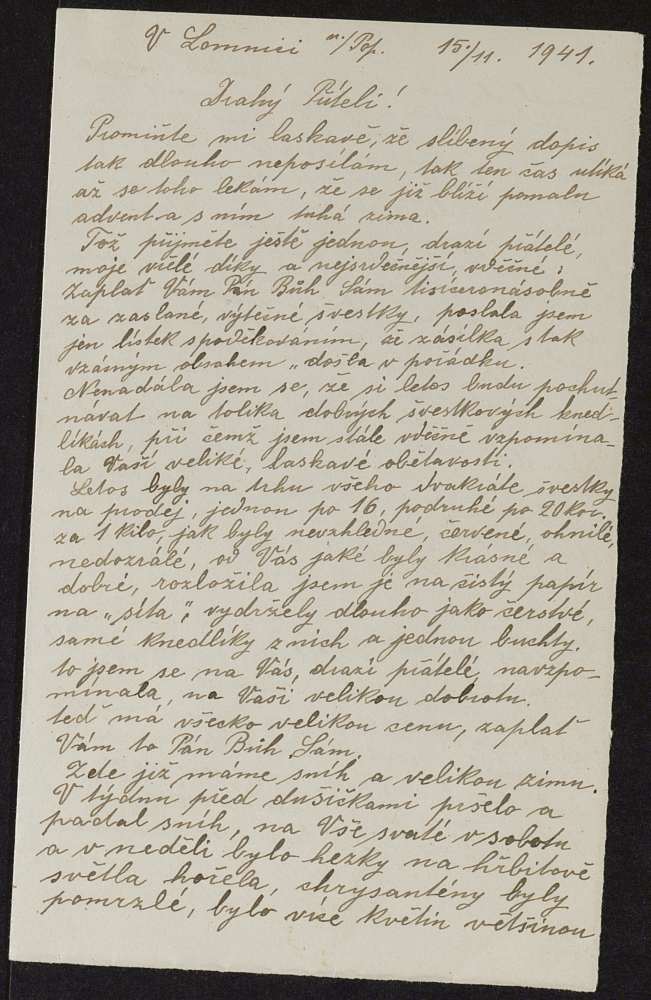 V Lomnici n./Pop. 15./11. 1941.
Drahý Příteli!
Promiňte mi laskavě, že slíbený dopis
tak dlouho neposílám, tak ten čas utíká
až se toho lekám, že se již blíží pomalu
advent a s ním tuhá zima.
Tož přijměte ještě jednou, drazí přátelé,
moje vřelé díky a nejsrdečnější, vděčné:
Zaplať Vám Pán Bůh Sám tisíceronásobně
za zaslané, výtečné švestky, poslala jsem
jen lístek s poděkováním, že zásilka s tak
vzácným obsahem „došla v pořádku.
Nenadála jsem se, že si letos budu pochut-
návat na tolika dobrých švestkových kned-
líkách, při čemž jsem stále vděčně vzpomína-
la Vaší veliké, laskavé obětavosti.
Letos byly na trhu všeho dvakráte švestky
na prodej, jednou po 16, podruhé po 20 kor.
za 1 kilo, jak byly nevzhledné, červené, ohnilé,
nedozrálé, od Vás jaké byly krásné a
dobré, rozložila jsem je na čistý papír
na „síta", vydržely dlouho jako čerstvé,
samé knedlíky z nich a jednou buchty.
to jsem se na Vás, drazí přátelé, navzpo-
mínala, na Vaši velikou dobrotu.
teď má všecko velikou cenu, zaplať
Vám to Pán Bůh Sám.
Zde již máme sníh a velikou zimu.
V týdnu před dušičkami pršelo a
padal sníh, na Vše svaté v sobotu
a v neděli bylo hezky na hřbitově
světla hořela, chrysantény byly
pomrzlé, bylo více květin většinou